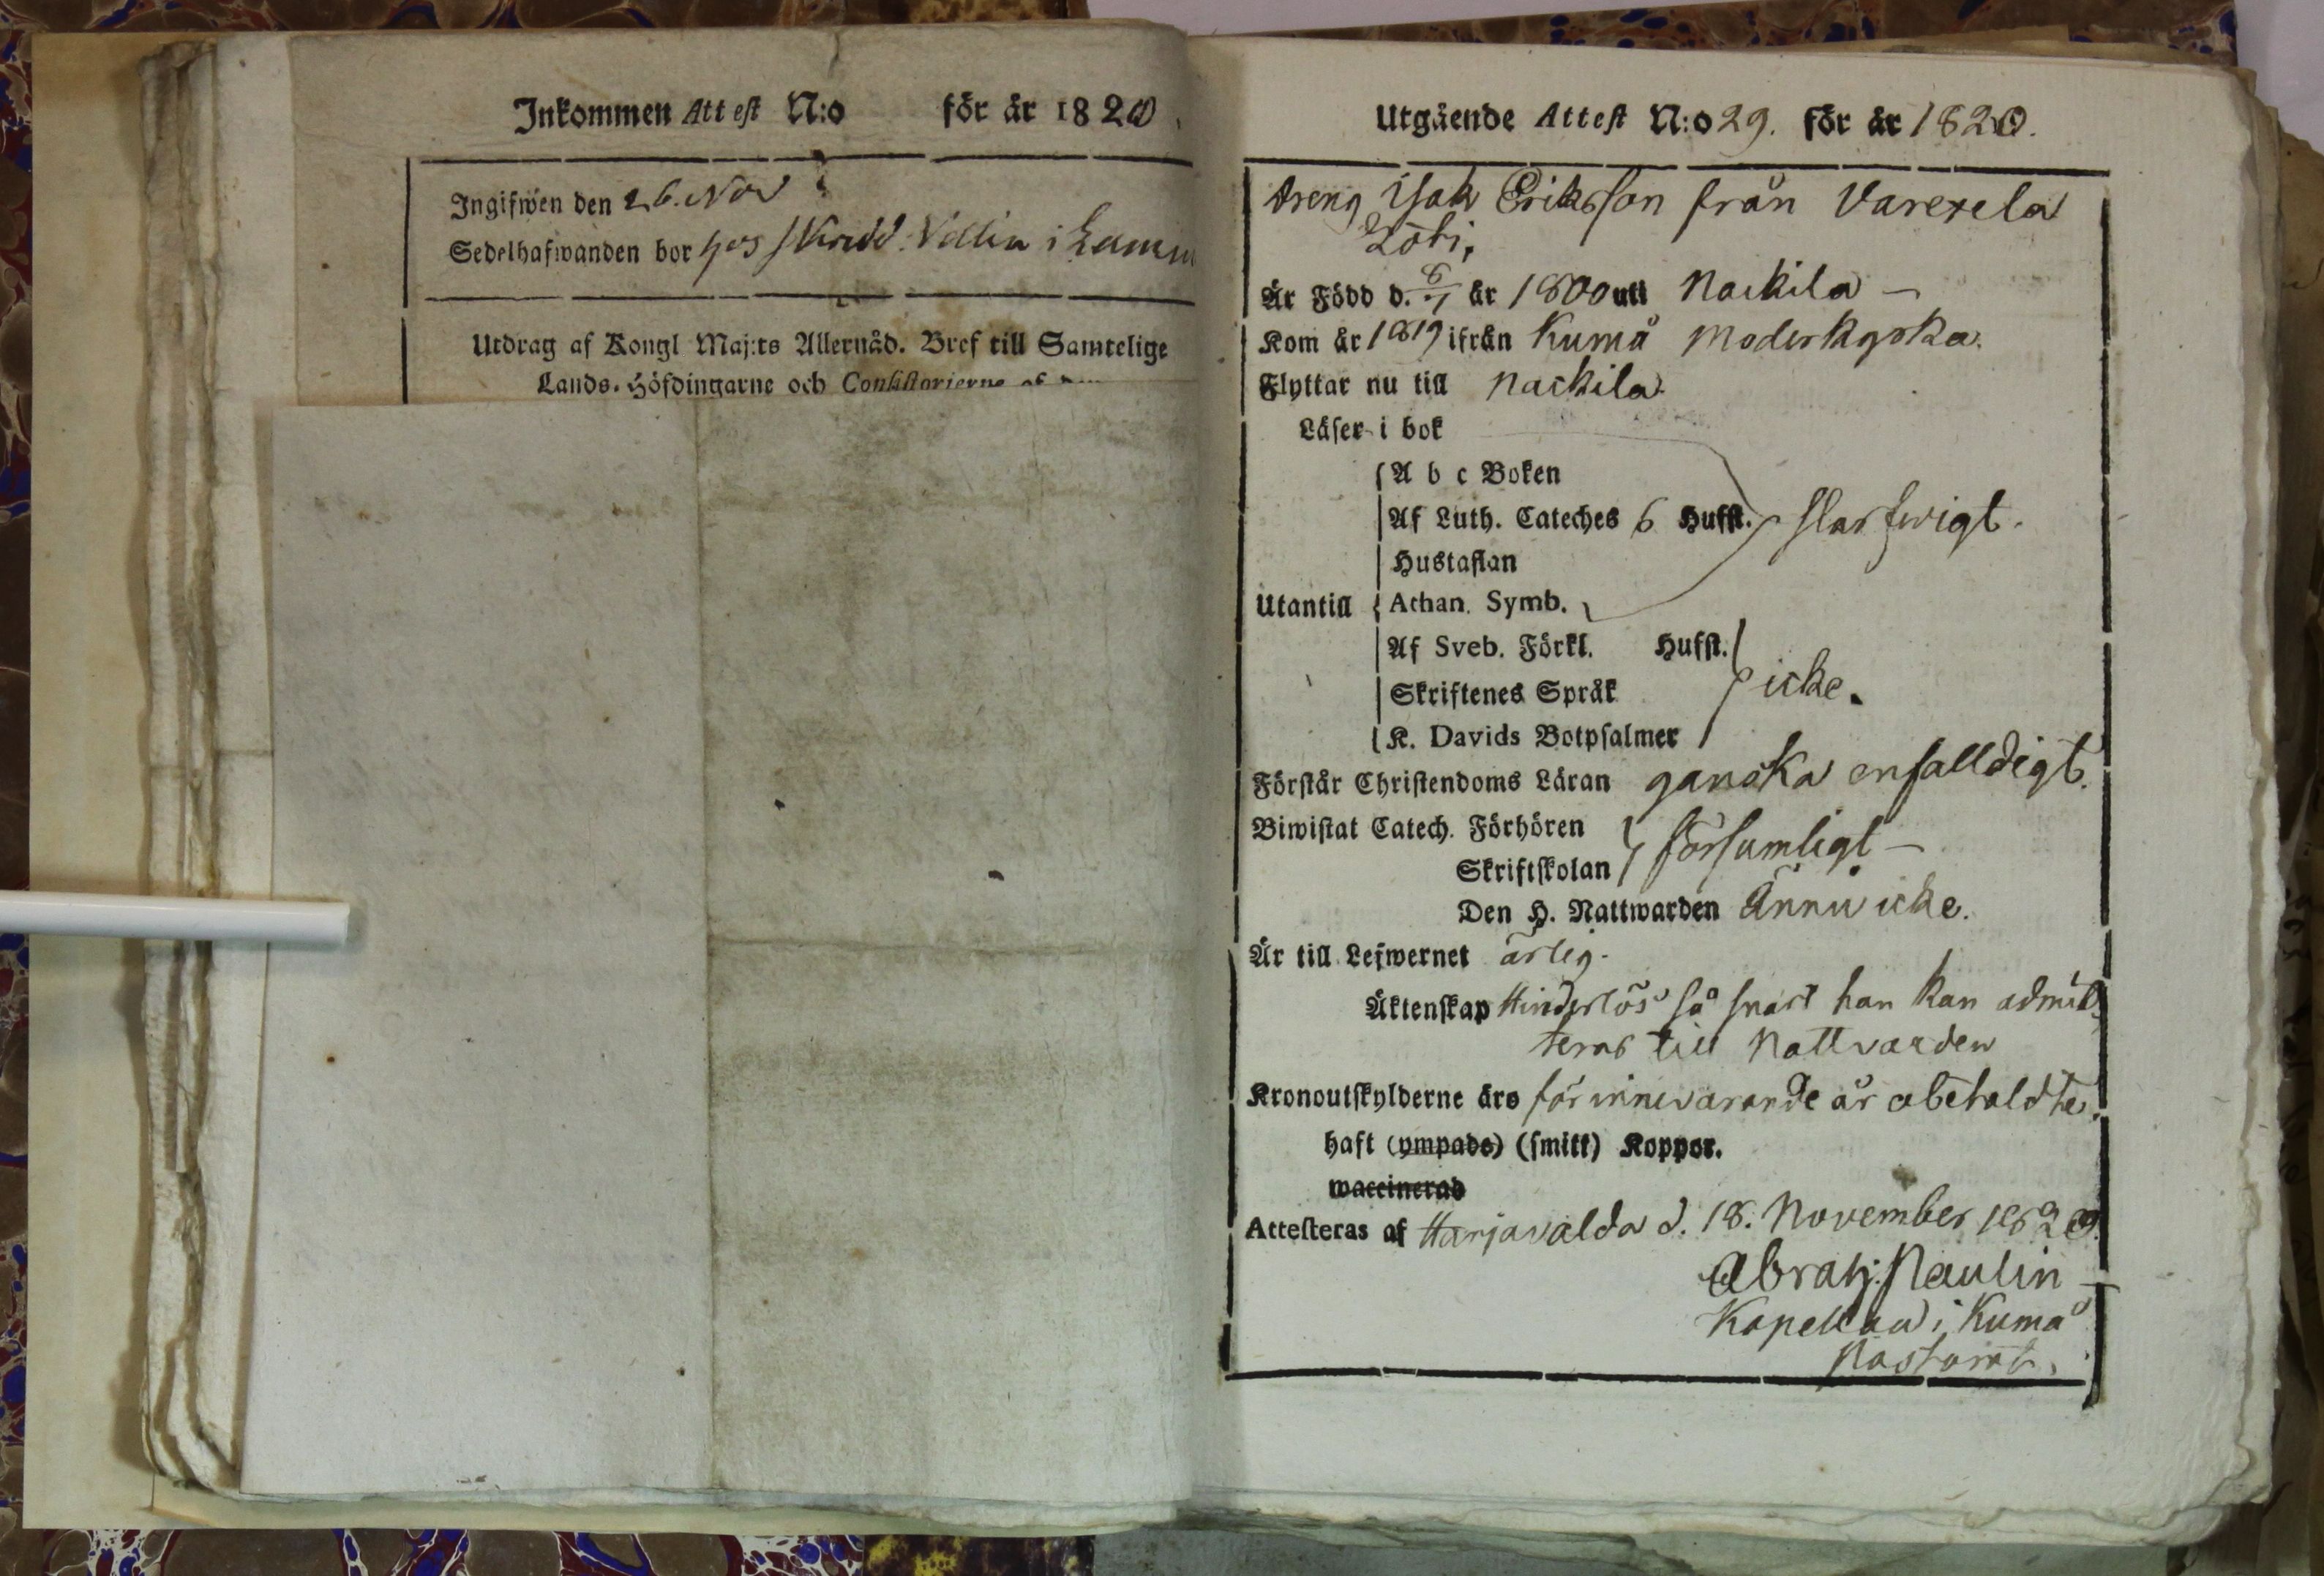 Inkommen Attest N:o för år 1820.
Ingifwen den 26. Nov
Sedelhafwanden bor hos Skredd. Vallin i
Utdrag af Kongl Maj:ts Allernåd. Bref till Samtelige
Lands-Höfdingarne och Consistorierne af
Utgående Attest N:o 29. för år 1820.
Dreng Isak Eriksson från Varerela
Är Född d. 8/7 år 1800 uti Nackila –
Kom år 1819 ifrån Kumå Moderkyrka.
Flyttar nu till Nackila.
Läser i bok
A b c Boken
Af Luth. Cateches 6 Hufst. slarfwigt.
Hustaflan
Utantill Athan. Symb.
Af Sveb. Förkl. Hufst.
Skriftenes Språk icke.
K. Davids Botpsalmer
Förstår Christendoms Läran ganska enfalldigt.
Biwistat Catech. Förhören försumligt –
Skriftskolan
Den H. Nattwarden Ännu icke.
Är till Lefwernet ärlig.
Äktenskap Hinderlös så snart han kan admit-
teras till Nattvarden
Kronoutskylderne äro för innevarande år obetaldte.
haft (ympade) (smitt) Koppor.
waccinerad
Attesteras af Harjavalda d. 18. November 1820.
Abrah. Paulin
Kapellan i Kumå
Pastorat.